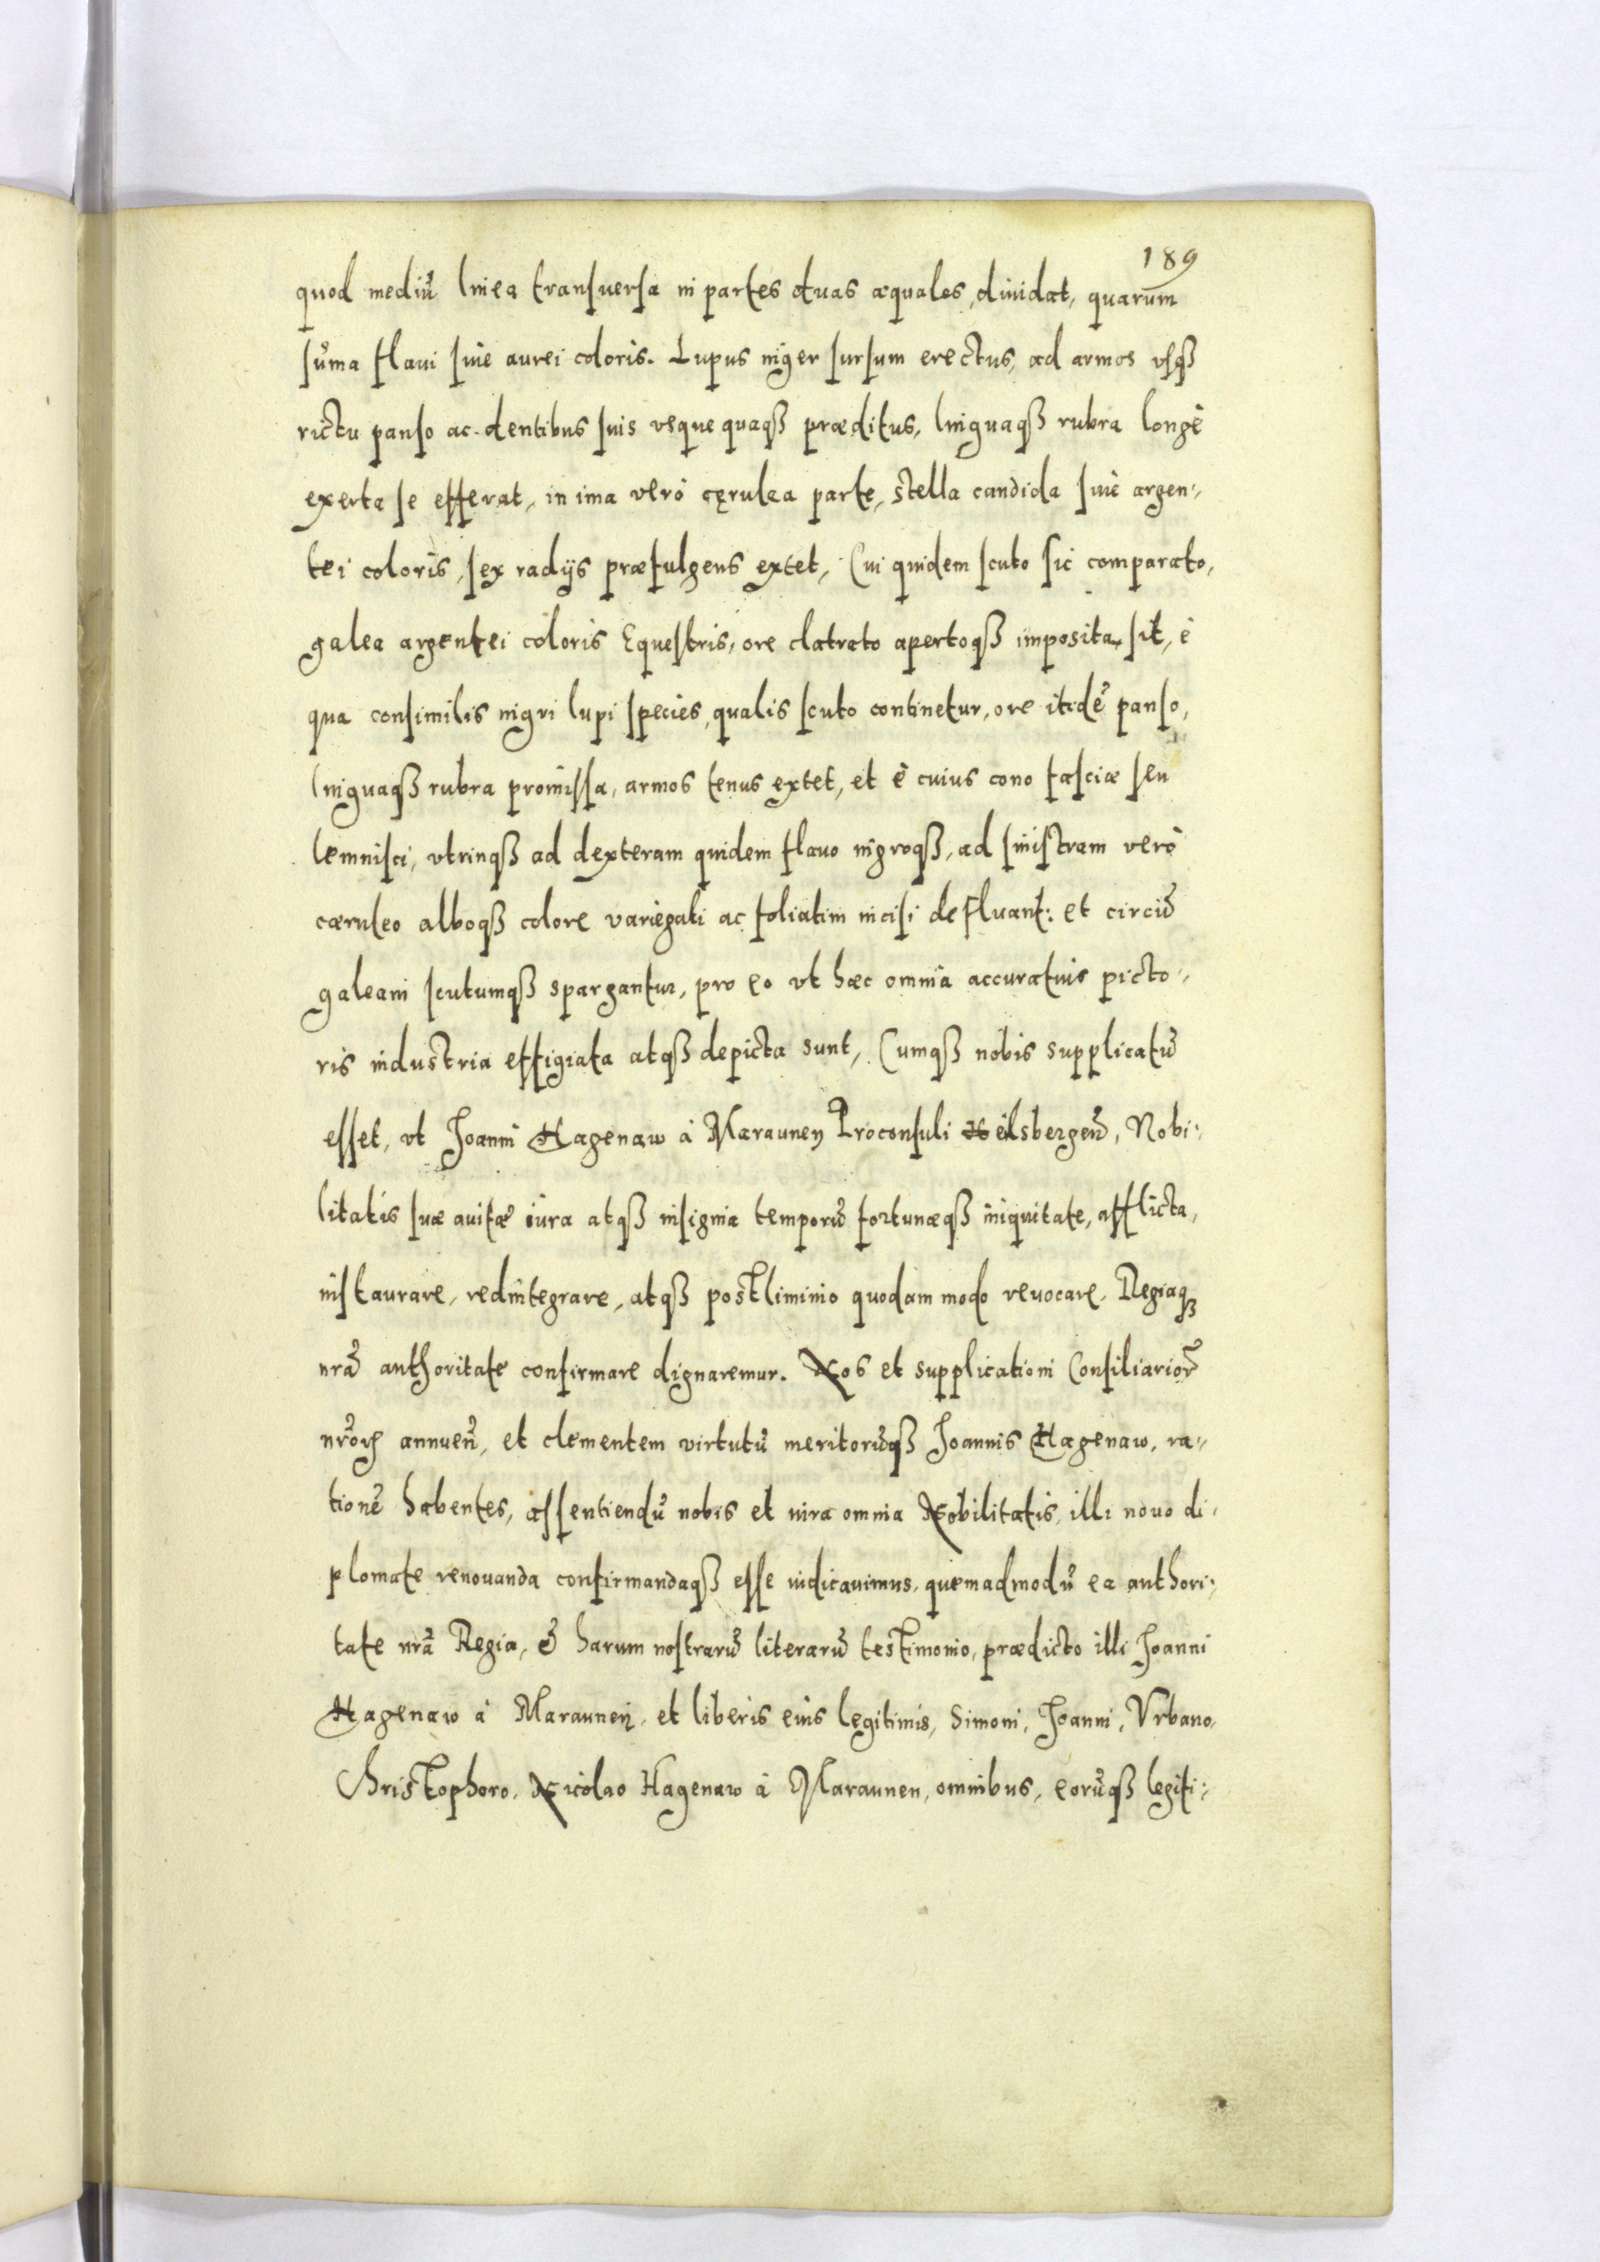 189
quod mediũ linea transuersa in partes duas æquales, diuidat, quarum
sũma flaui siue aurei coloris. Lupus niger sursum erectus, ad armos vsqꝫ
rictu panso ac dentibus suis vsque quaqꝫ præditus, linguaqꝫ rubra longè
exerta se efferat, in ima verò cęrulea parte, stella candida siuè argen-
tei coloris, sex radijs præfulgens extet, Cui quidem scuto sic comparato,
galea argentei coloris Equestris, ore clatrato apertoqꝫ imposita sit, è
qua consimilis nigri lupi species, qualis scuto continetur, ore itidẽ panso,
linguaqꝫ rubra promissa, armos tenus extet, et è cuius cono fasciæ seu
lemnisci, vtrinqꝫ ad dexteram quidem flauo nigroqꝫ, ad sinistram verò
cæruleo alboqꝫ colore variegati ac foliatim incisi defluant: et circũ
galeam scutumqꝫ spargantur, pro eo vt hæc omnia accuratius picto-
ris industria effigiata atqꝫ depicta sunt, Cumqꝫ nobis supplicatũ
esset, vt Joanni Hagenaw à Maraunen Proconsuli Heilsbergeñ, Nobi-
litatis suæ auitæ iura atqꝫ insignia temporũ fortunæqꝫ iniquitate, afflicta,
instaurare, redintegrare, atqꝫ postliminio quodam modo reuocare, Regiaqꝫ
nrã authoritate confirmare dignaremur. Nos et supplicationi Consiliariorũ
nrõrꝝ annueñ, et clementem virtutũ meritorũqꝫ Joannis Hagenaw, ra-
tionẽ habentes, assentiendũ nobis et iura omnia Nobilitatis, illi nouo di-
plomate renouanda confirmandaqꝫ esse iudicauimus, quemadmodũ ea authori-
tate nrã Regia, & harum nostrarũ literarũ testimonio, prædicto illi Joanni
Hagenaw à Maraunen, et liberis eius legitimis, Simoni, Joanni, Vrbano,
Christophoro, Nicolao Hagenaw à Maraunen, omnibus, eorũqꝫ legiti-